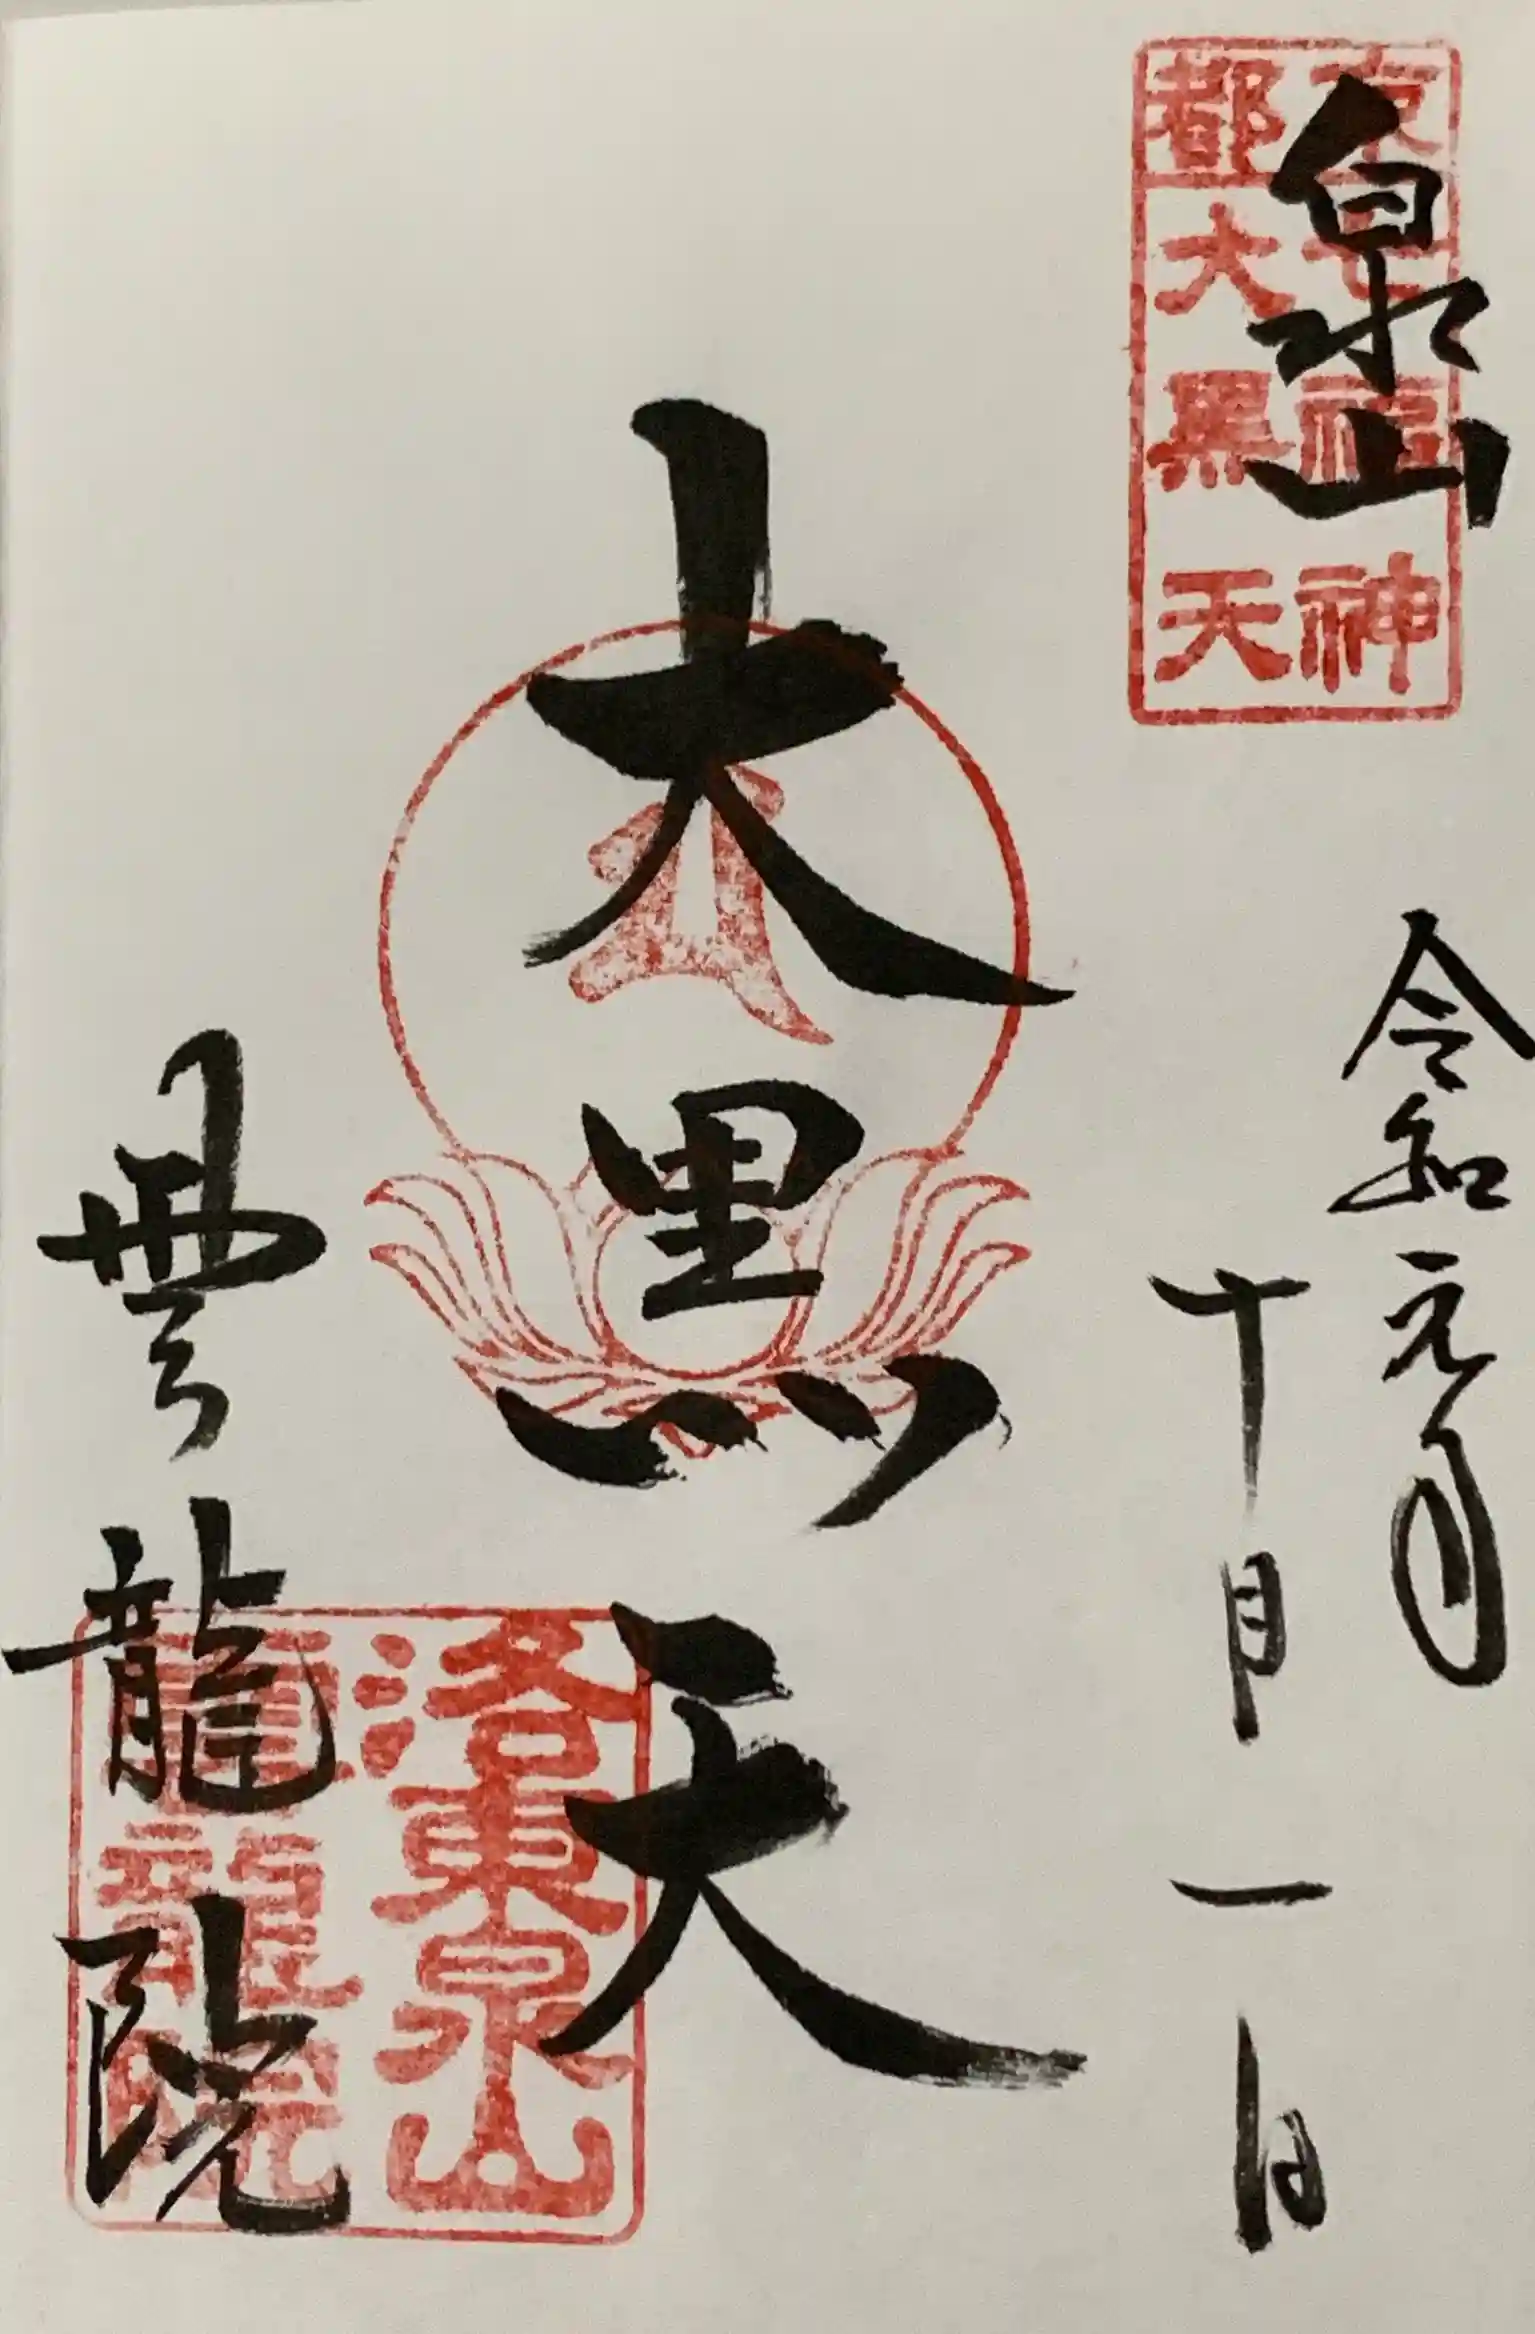 京都
七福神
大黒天
泉山
令和元年
十月一日
大黒天
雲龍院
洛東泉山
雲龍院